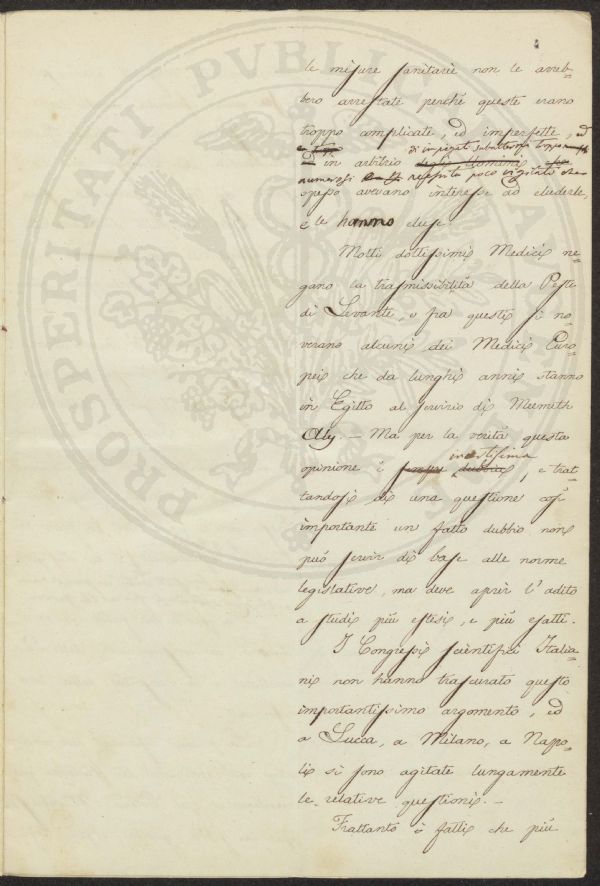 le misure sanitarie non le avreb-
bero arrestate perchè queste erano
troppo complicate, ed imperfette, ed
in arbitrio di impiegati subalterni troppo
numerosi poco vigilati che
spesso avevano interesse ad eluderle,
e le hanno eluse.
Molti dottissimi Medici ne-
gano la trasmissibilità della Peste
di Levante, e fra questi si no-
verano alcuni dei Medici Euro-
pei che da lunghi anni stanno
in Egitto al servizio di Meemeth
Aly. — Ma per la verità questa
opinione è incertissima, e trat-
tandosi di una questione così
importante un fatto dubbio non
può servir di base alle norme
legislative, ma deve aprir l'adito
a studi più estesi, e più esatti.
I Congressi scientifici Italia-
ni non hanno trascurato questo
importantissimo argomento, ed
a Lucca, a Milano, a Napo-
li si sono agitate lungamente
le relative questioni. —
Frattanto i fatti che più
PROSPERITATI PVBLICAE